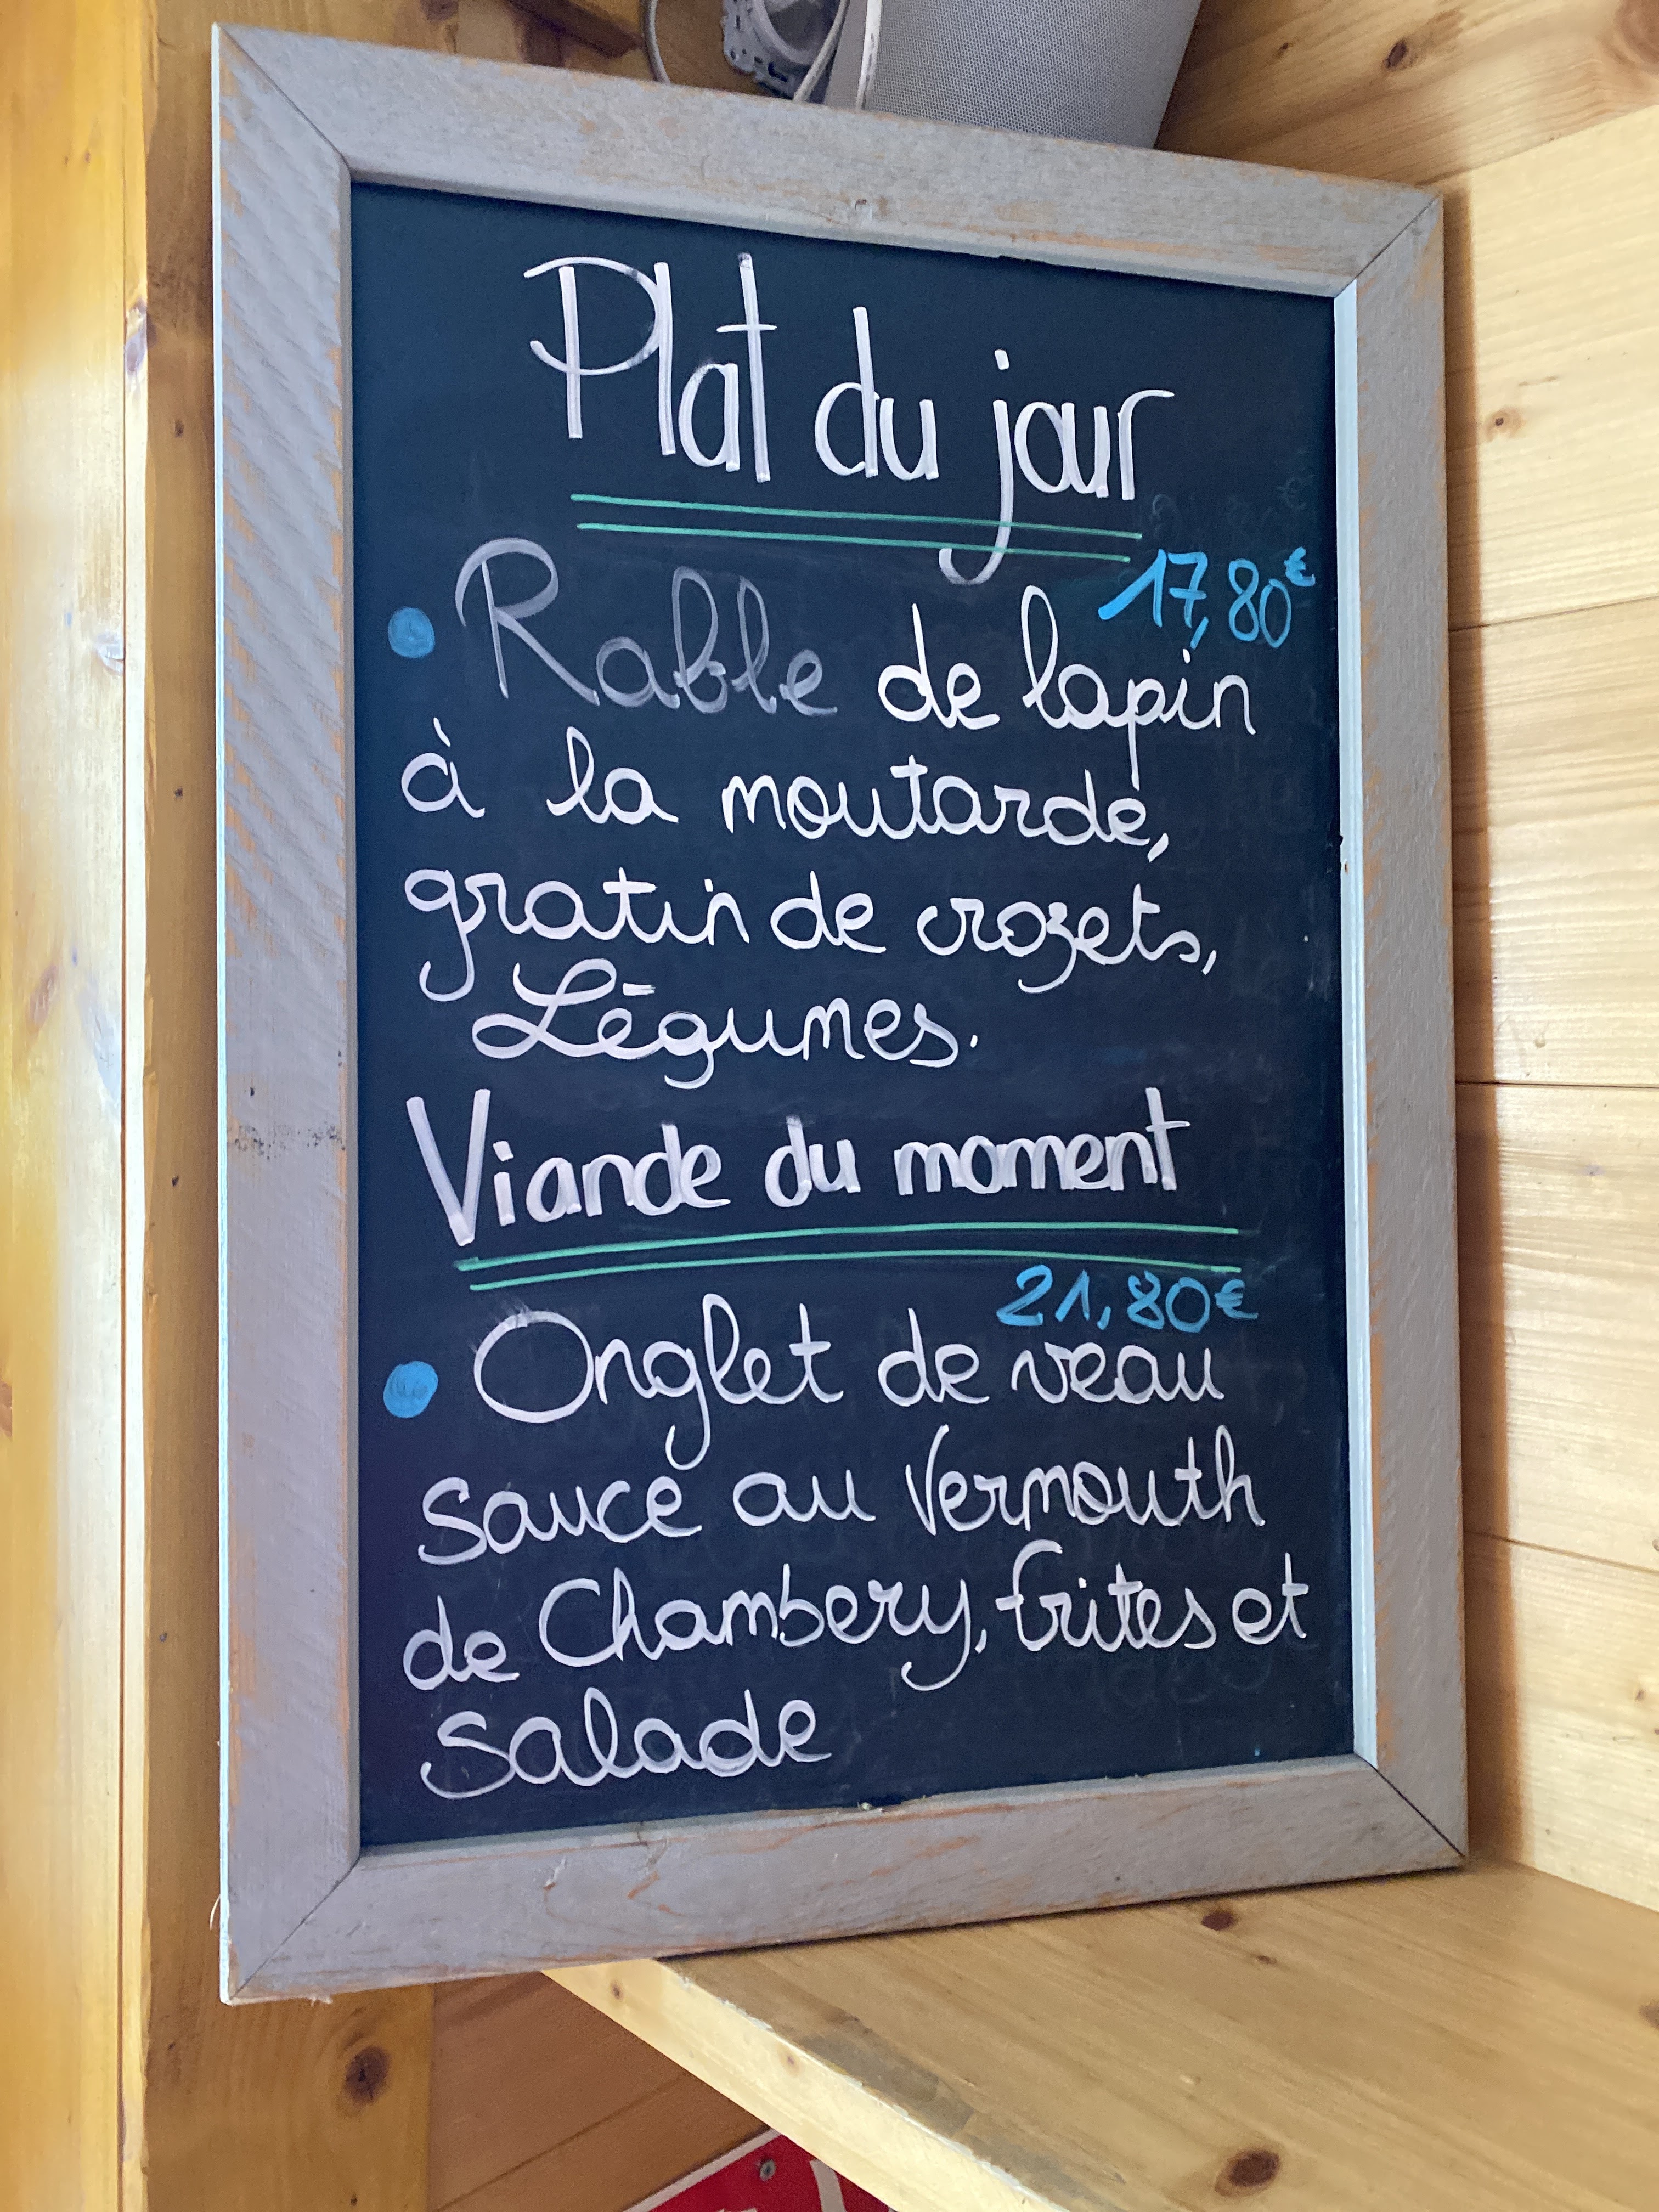 Plat du jour
17,80€
• Rable de lapin
à la moutarde,
gratin de crozets,
Légumes.
Viande du moment
21,80€
• Onglet de veau
sauce au Vermouth
de Chambery, frites et
salade